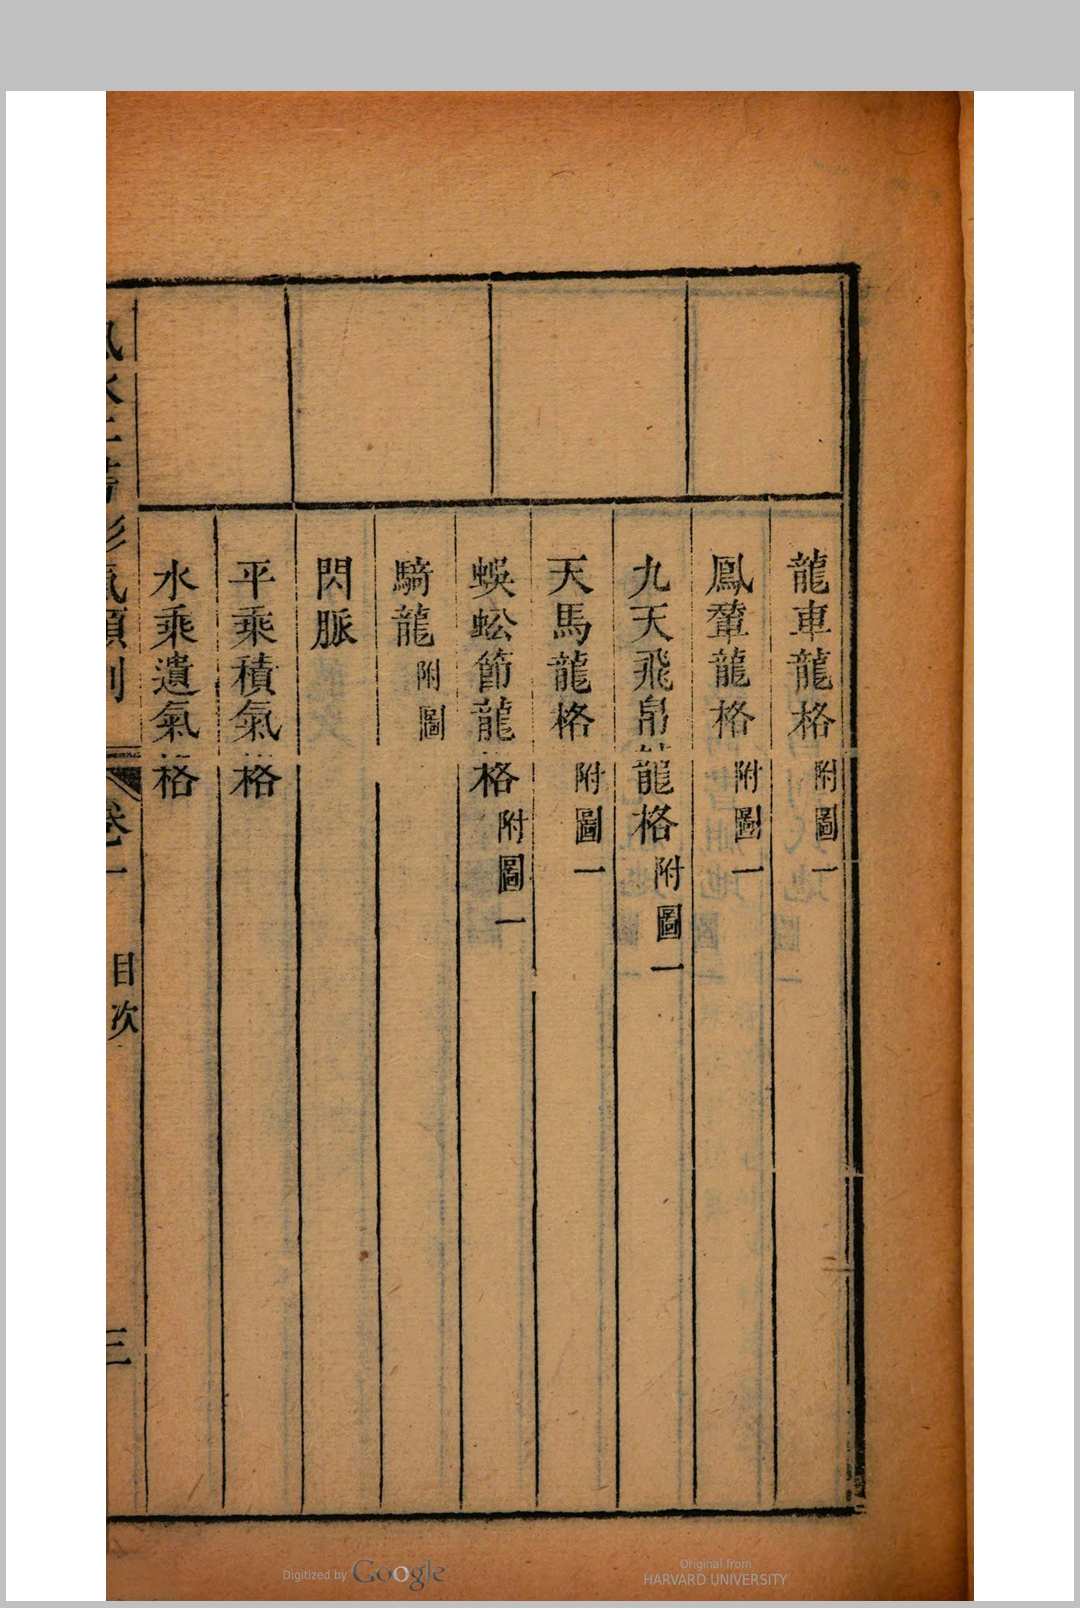 龍車龍格附圖一
鳳輦龍格附圖一
九天飛帛龍格附圖一
天馬龍格附圖一
蜈蚣節龍格附圖一
騎龍附圖
閃脈
平乘積氣格
水乘遺氣格
風水二書形氣類則
卷一 目次
三
Digitized by Google
Original from
HARVARD UNIVERSITY